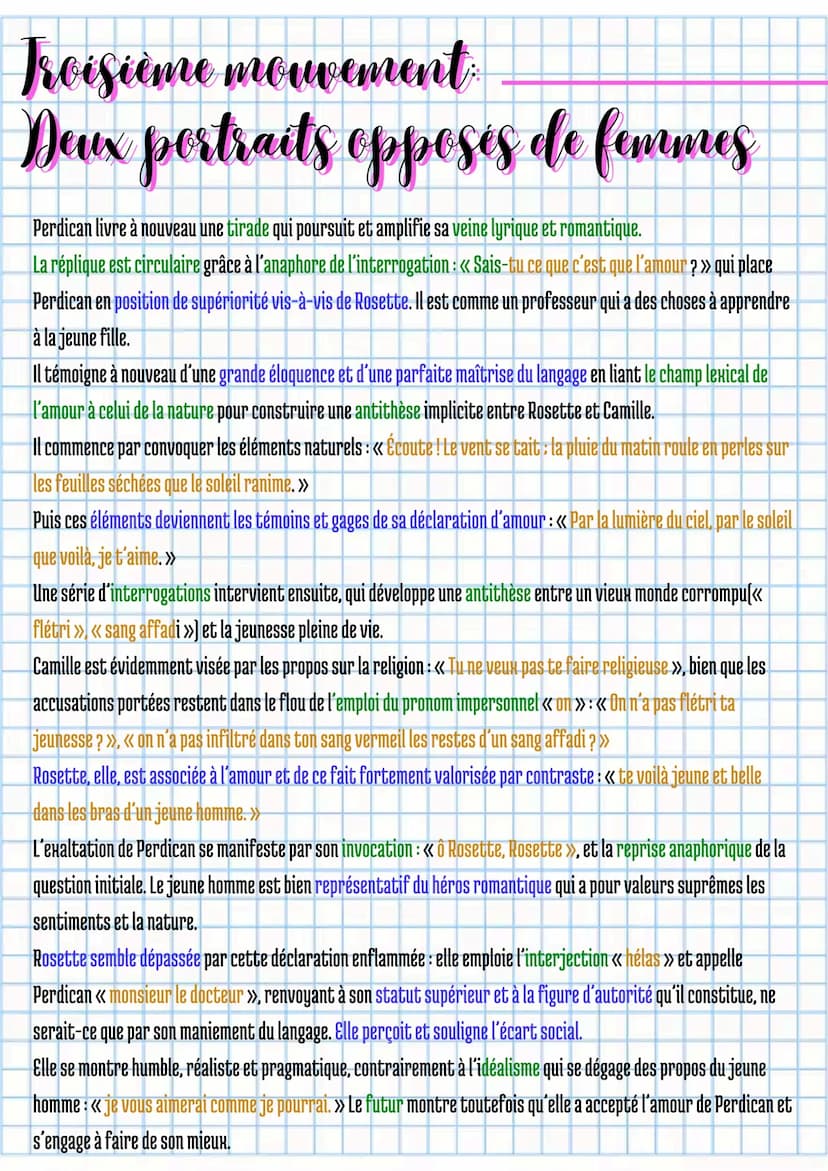 Troisième mouvement:
Deux portraits opposés de femmes
Perdican livre à nouveau une tirade qui poursuit et amplifie sa veine lyrique et romantique.
La réplique est circulaire grâce à l'anaphore de l'interrogation : « Sais-tu ce que c'est que l'amour ? » qui place
Perdican en position de supériorité vis-à-vis de Rosette. Il est comme un professeur qui a des choses à apprendre
à la jeune fille.
Il témoigne à nouveau d'une grande éloquence et d'une parfaite maîtrise du langage en liant le champ lexical de
l'amour à celui de la nature pour construire une antithèse implicite entre Rosette et Camille.
Il commence par convoquer les éléments naturels : « Écoute ! Le vent se tait ; la pluie du matin roule en perles sur
les feuilles séchées que le soleil ranime. »
Puis ces éléments deviennent les témoins et gages de sa déclaration d'amour : « Par la lumière du ciel, par le soleil
que voilà, je t'aime. »
Une série d'interrogations intervient ensuite, qui développe une antithèse entre un vieux monde corrompu(«
flétri », « sang affadi ») et la jeunesse pleine de vie.
Camille est évidemment visée par les propos sur la religion : « Tu ne veux pas te faire religieuse », bien que les
accusations portées restent dans le flou de l'emploi du pronom impersonnel « on » : « On n'a pas flétri ta
jeunesse ? », « on n'a pas infiltré dans ton sang vermeil les restes d'un sang affadi ? »
Rosette, elle, est associée à l'amour et de ce fait fortement valorisée par contraste : « te voilà jeune et belle
dans les bras d'un jeune homme. »
L'exaltation de Perdican se manifeste par son invocation : « ô Rosette, Rosette », et la reprise anaphorique de la
question initiale. Le jeune homme est bien représentatif du héros romantique qui a pour valeurs suprêmes les
sentiments et la nature.
Rosette semble dépassée par cette déclaration enflammée : elle emploie l'interjection « hélas » et appelle
Perdican « monsieur le docteur », renvoyant à son statut supérieur et à la figure d'autorité qu'il constitue, ne
serait-ce que par son maniement du langage. Elle perçoit et souligne l'écart social.
Elle se montre humble, réaliste et pragmatique, contrairement à l'idéalisme qui se dégage des propos du jeune
homme : « je vous aimerai comme je pourrai. » Le futur montre toutefois qu'elle a accepté l'amour de Perdican et
s'engage à faire de son mieux.